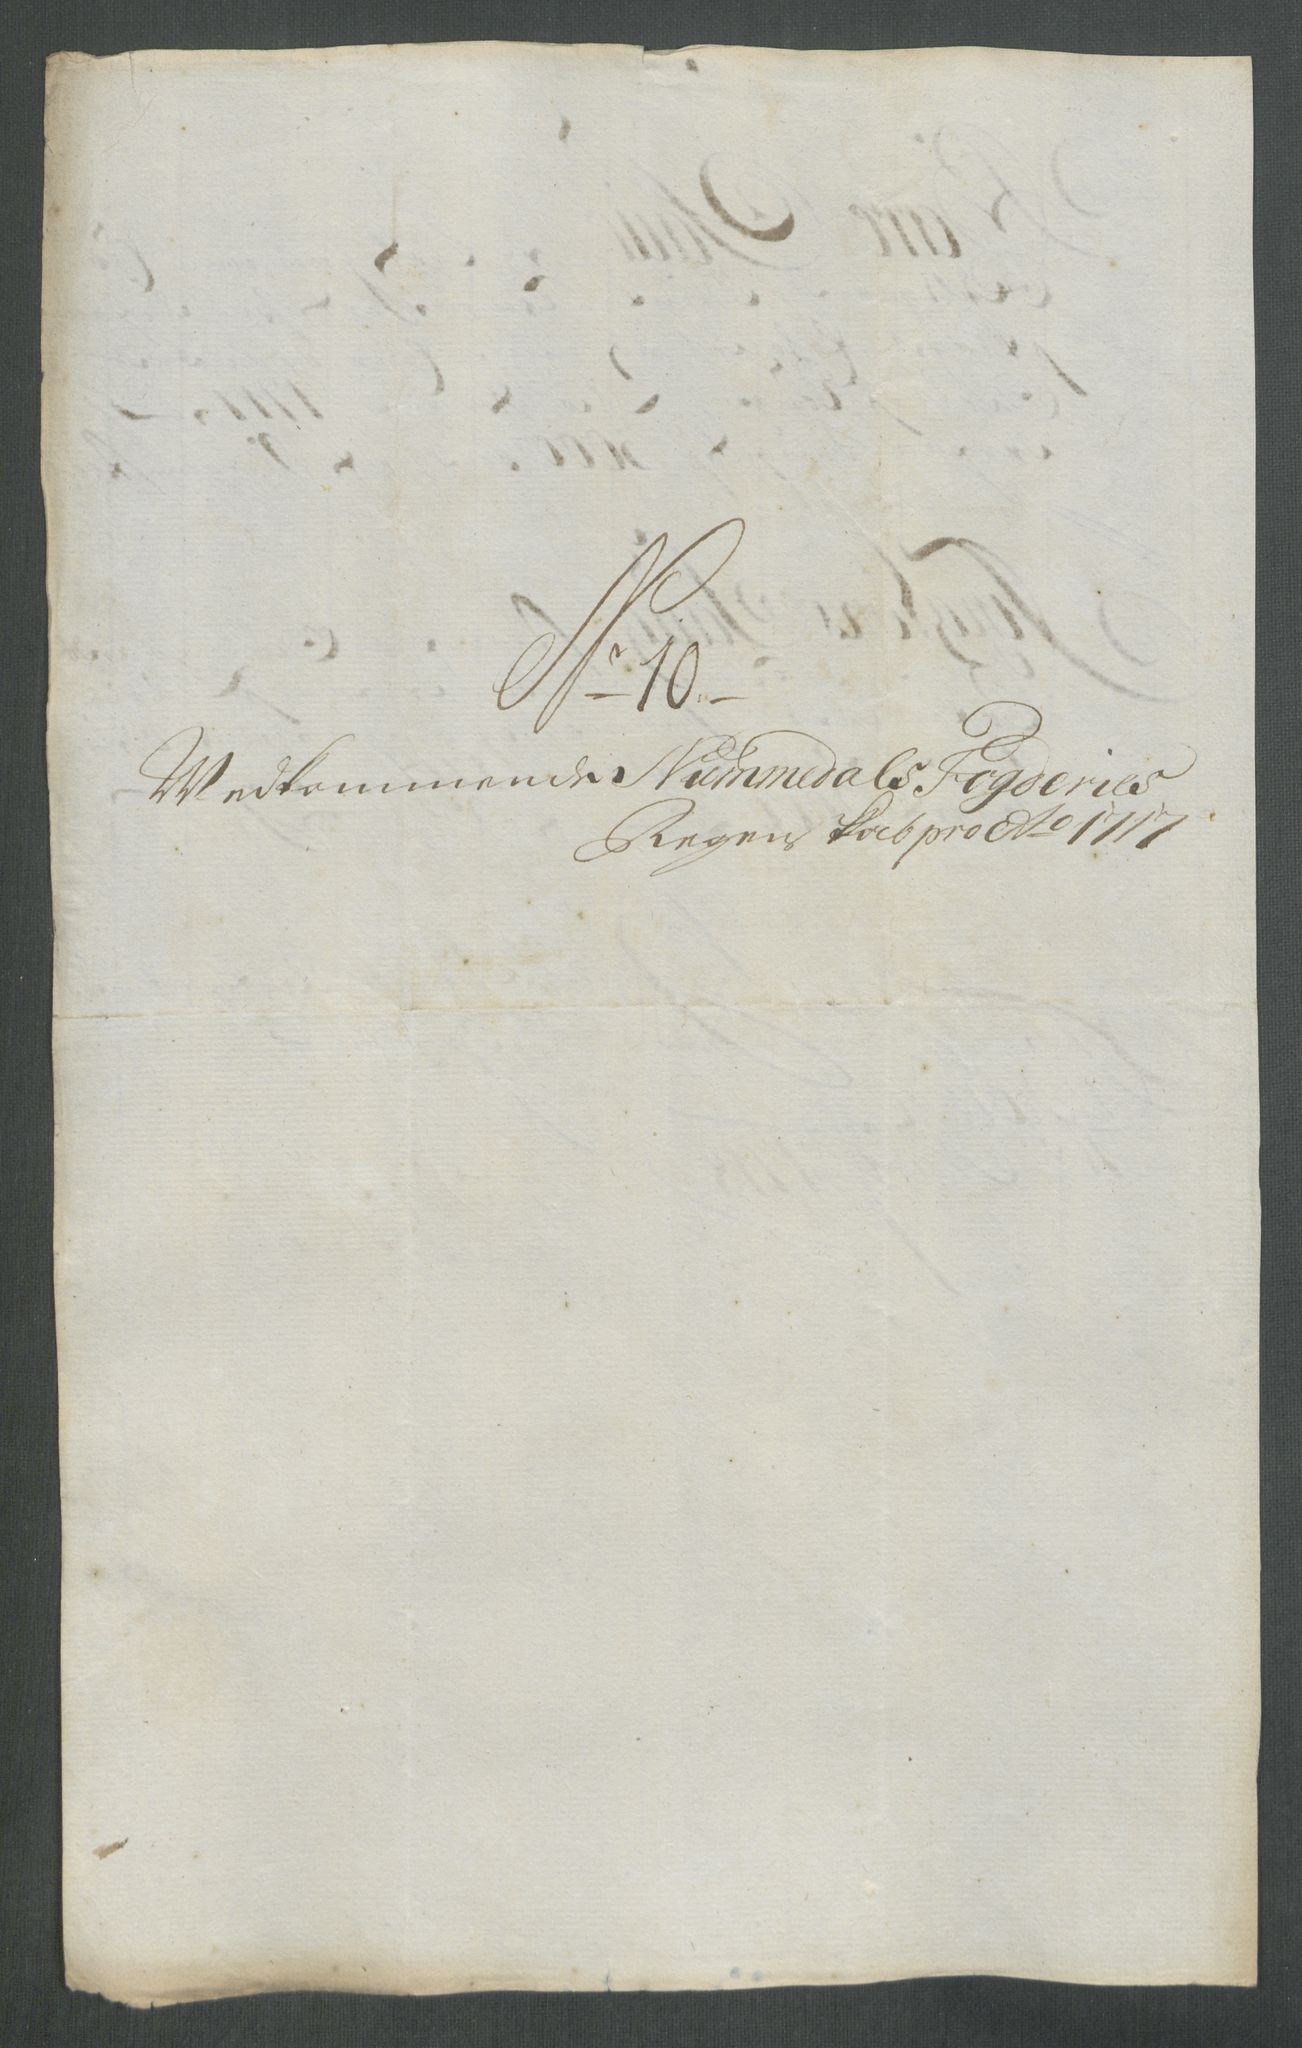 Nr 10
Wedkommende Nummedals Fogderies
Regenskab pro Ao 1717